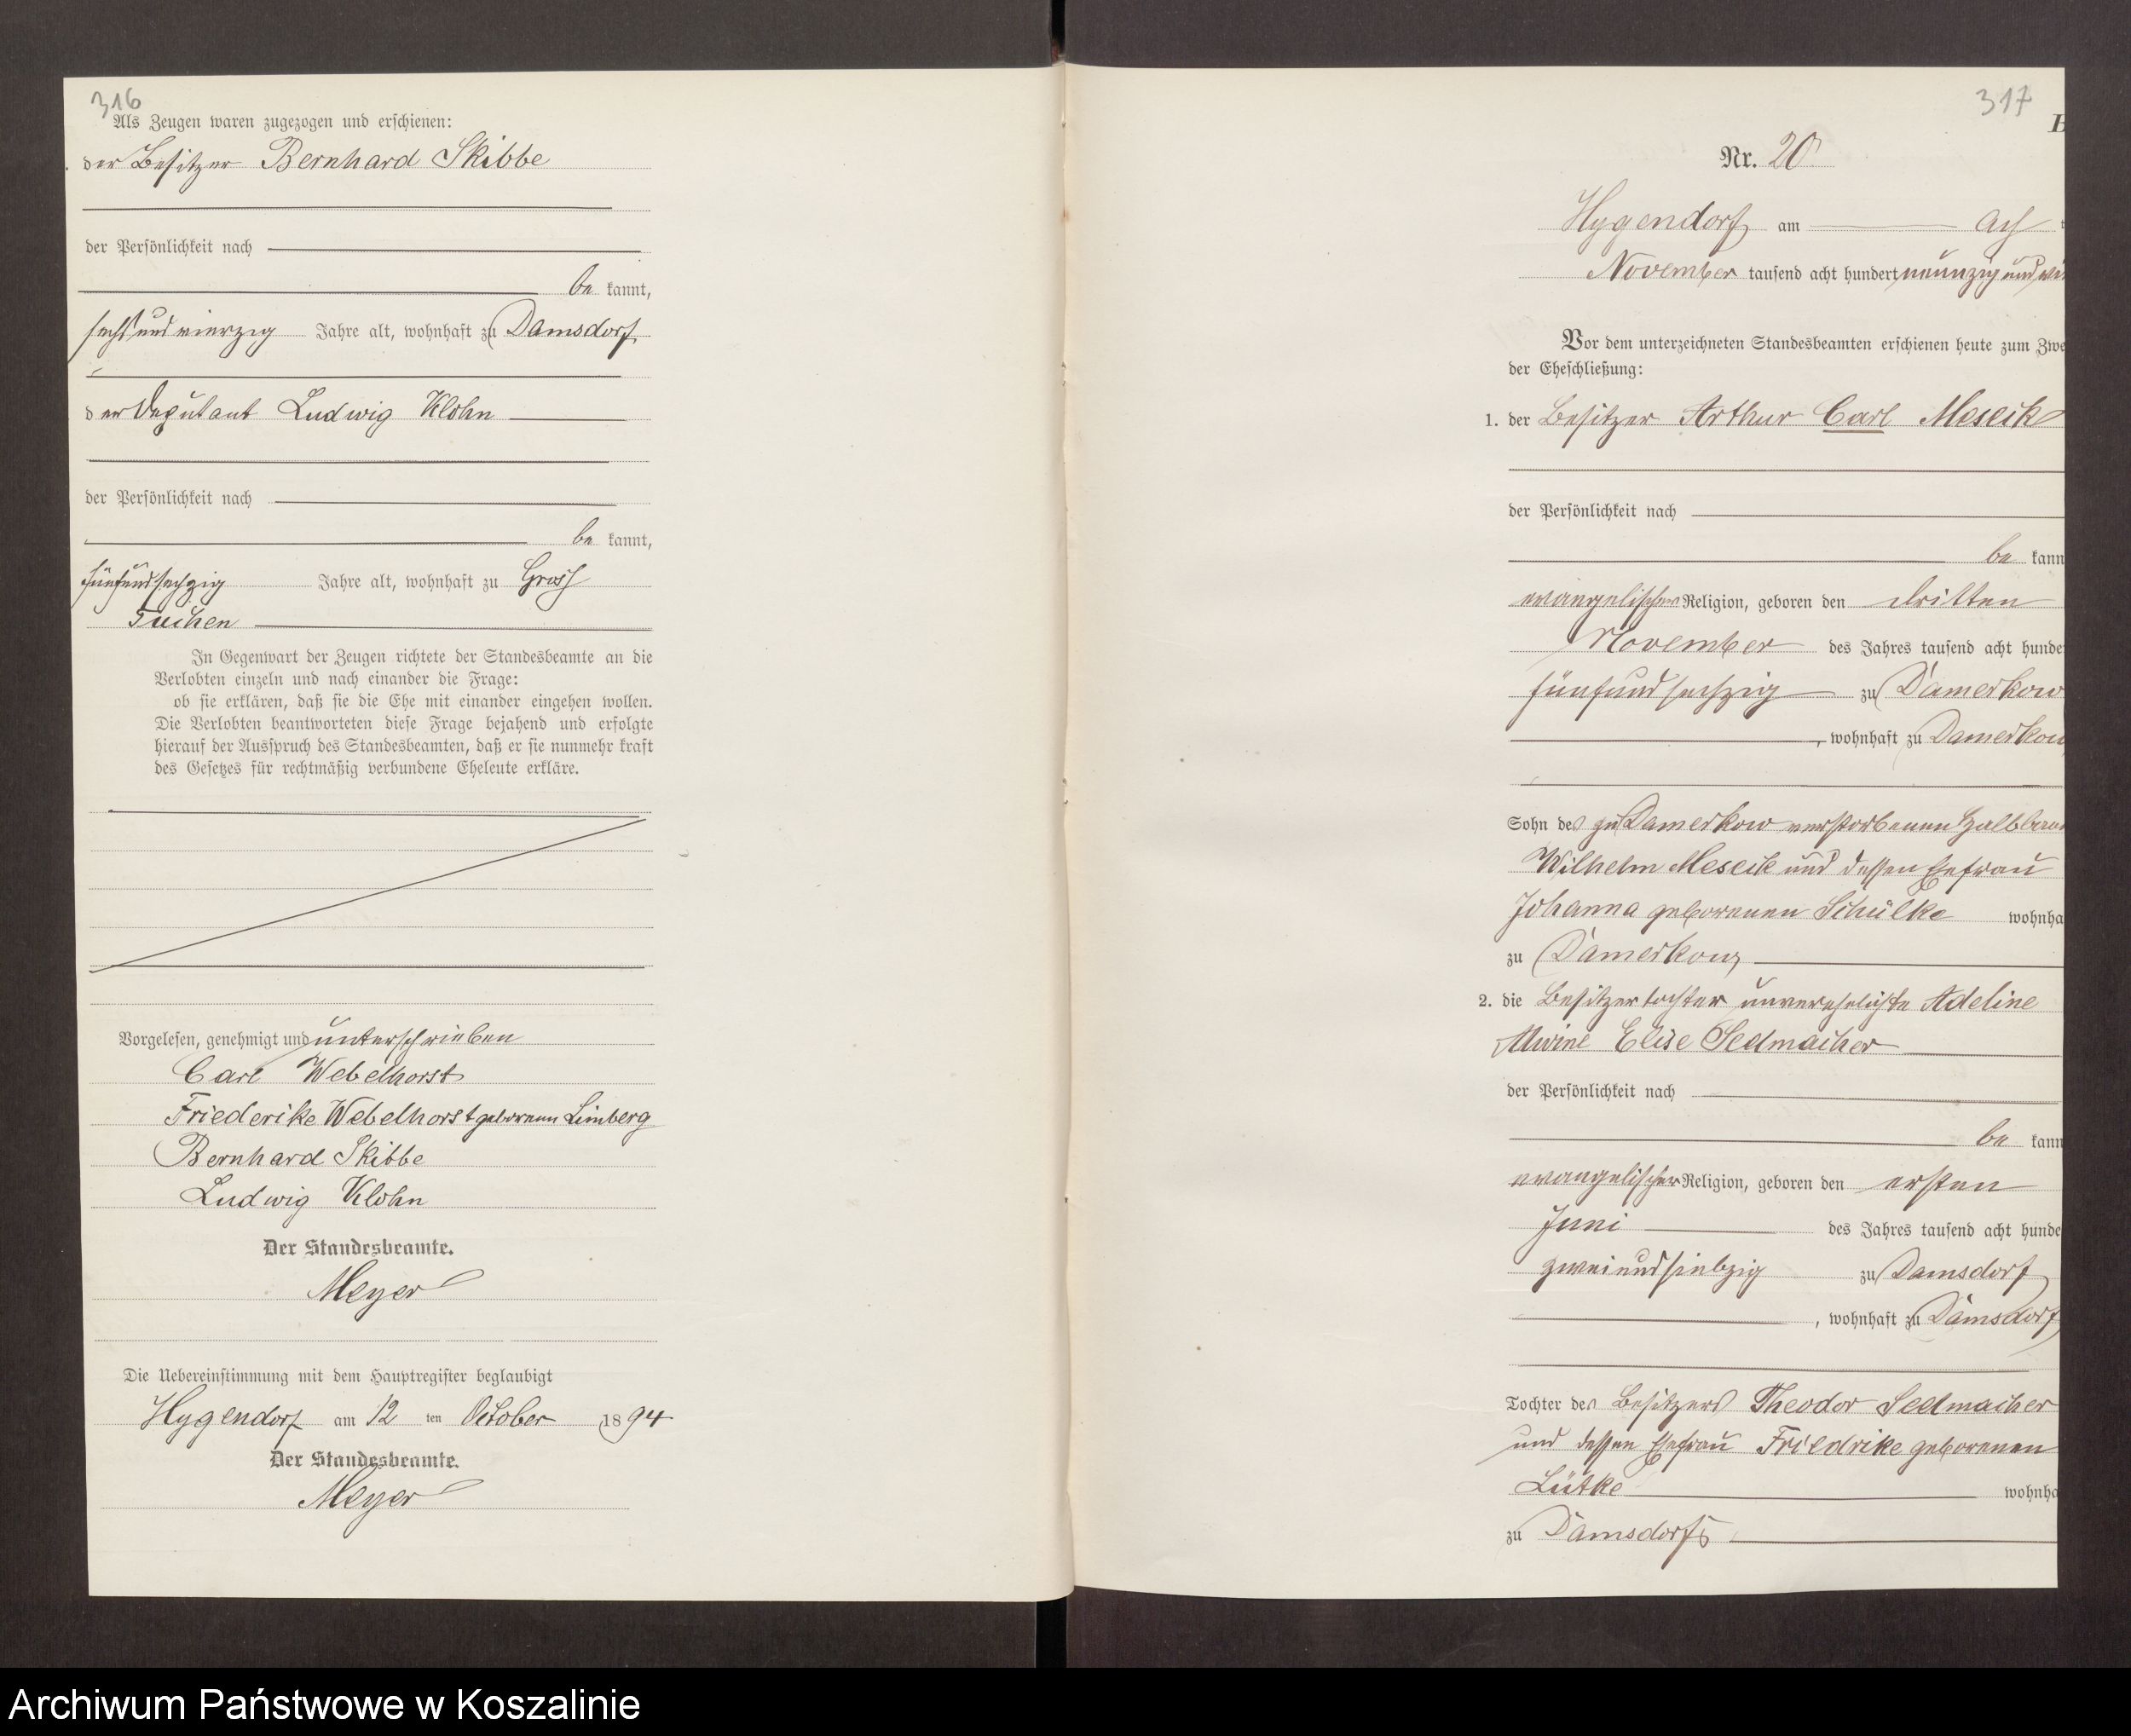 316
Als Zeugen waren zugezogen und erschienen:
der Besitzer Bernhard Skibbe
der Persönlichkeit nach
be kannt,
sechsundvierzig Jahre alt, wohnhaft zu Damsdorf
der Deputant Ludwig Klohn
der Persönlichkeit nach
be kannt,
fünfundsechzig Jahre alt, wohnhaft zu Gross
Tuchen
In Gegenwart der Zeugen richtete der Standesbeamte an die
Verlobten einzeln und nach einander die Frage:
ob sie erklären, daß sie die Ehe mit einander eingehen wollen.
Die Verlobten beantworteten diese Frage bejahend und erfolgte
hierauf der Ausspruch des Standesbeamten, daß er sie nunmehr kraft
des Gesetzes für rechtmäßig verbundene Eheleute erkläre.
Vorgelesen, genehmigt und unterschrieben
Carl Webelhorst
Friederike Webelhorst geborenen Limberg
Bernhard Skibbe
Ludwig Klohn
Der Standesbeamte.
Meyer
Die Uebereinstimmung mit dem Hauptregister beglaubigt
Hygendorf am 12 ten October 1894
Der Standesbeamte.
Meyer
317
Nr. 20
Hygendorf am ach
November tausend acht hundert neunzig und vie
Vor dem unterzeichneten Standesbeamten erschienen heute zum Zwe
der Eheschließung:
1. der Besitzer Arthur Carl Meseck
der Persönlichkeit nach
be kann
evangelischer Religion, geboren den dritten
November des Jahres tausend acht hunde
fünfundsechzig zu Damerkow
, wohnhaft zu Damerkow
Sohn des zu Damerkow verstorbenen Halbbau
Wilhelm Meseck und dessen Ehefrau
Johanna geborenen Schülke wohnha
zu Damerkow
2. die Besitzertochter unverehelichte Adeline
Alwine Elise Sedmacher
der Persönlichkeit nach
be kann
evangelischer Religion, geboren den ersten
Juni des Jahres tausend acht hunde
zweiundsiebzig zu Damsdorf
, wohnhaft zu Damsdorf
Tochter des Besitzers Theodor Sedmacher
und dessen Ehefrau Friedrike geborenen
Lütke wohnha
zu Damsdorf
Archiwum Państwowe w Koszalinie